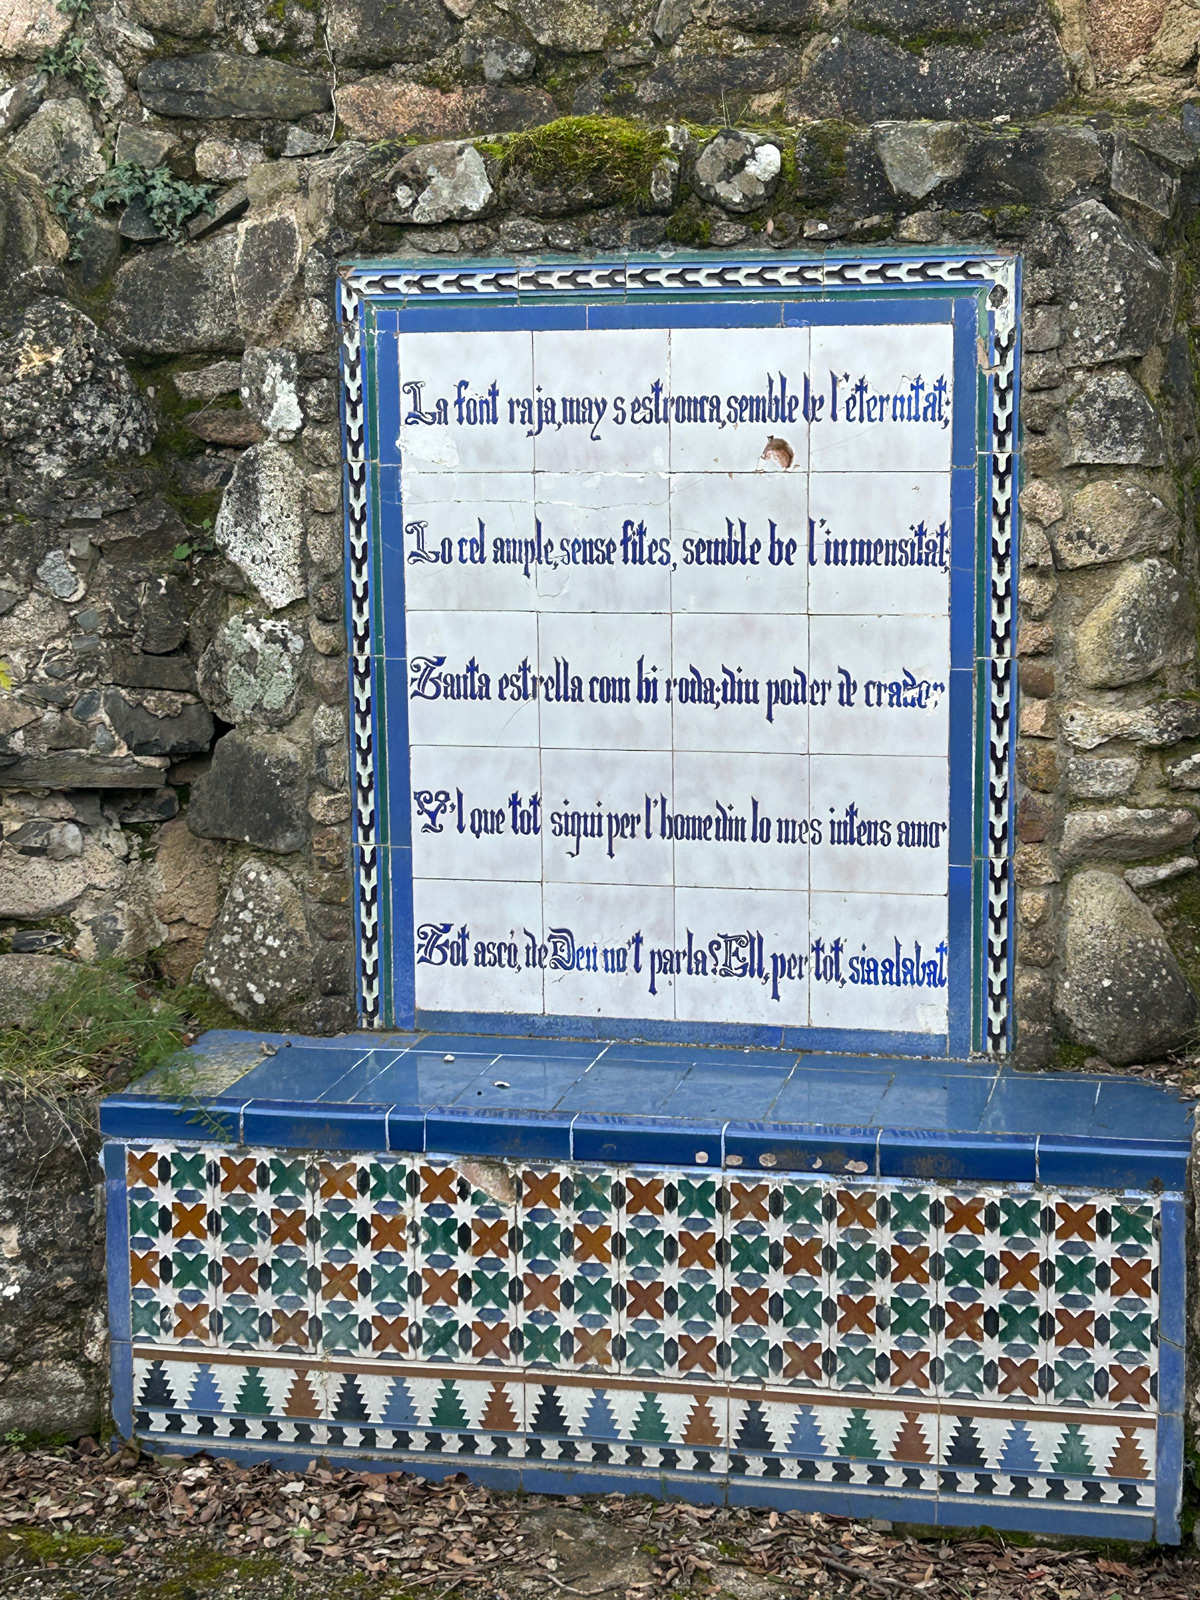 La font raja, may s estronca, semble be l'eternitat;
Lo cel ample, sense fites, semble be l'inmensitat;
Tanta estrella com hi roda; diu poder de creador
Y'l que tot siqui per l'home diu lo mes intens amor
Tot ascò, de Deu no't parla? Ell, per tot, sia alabat